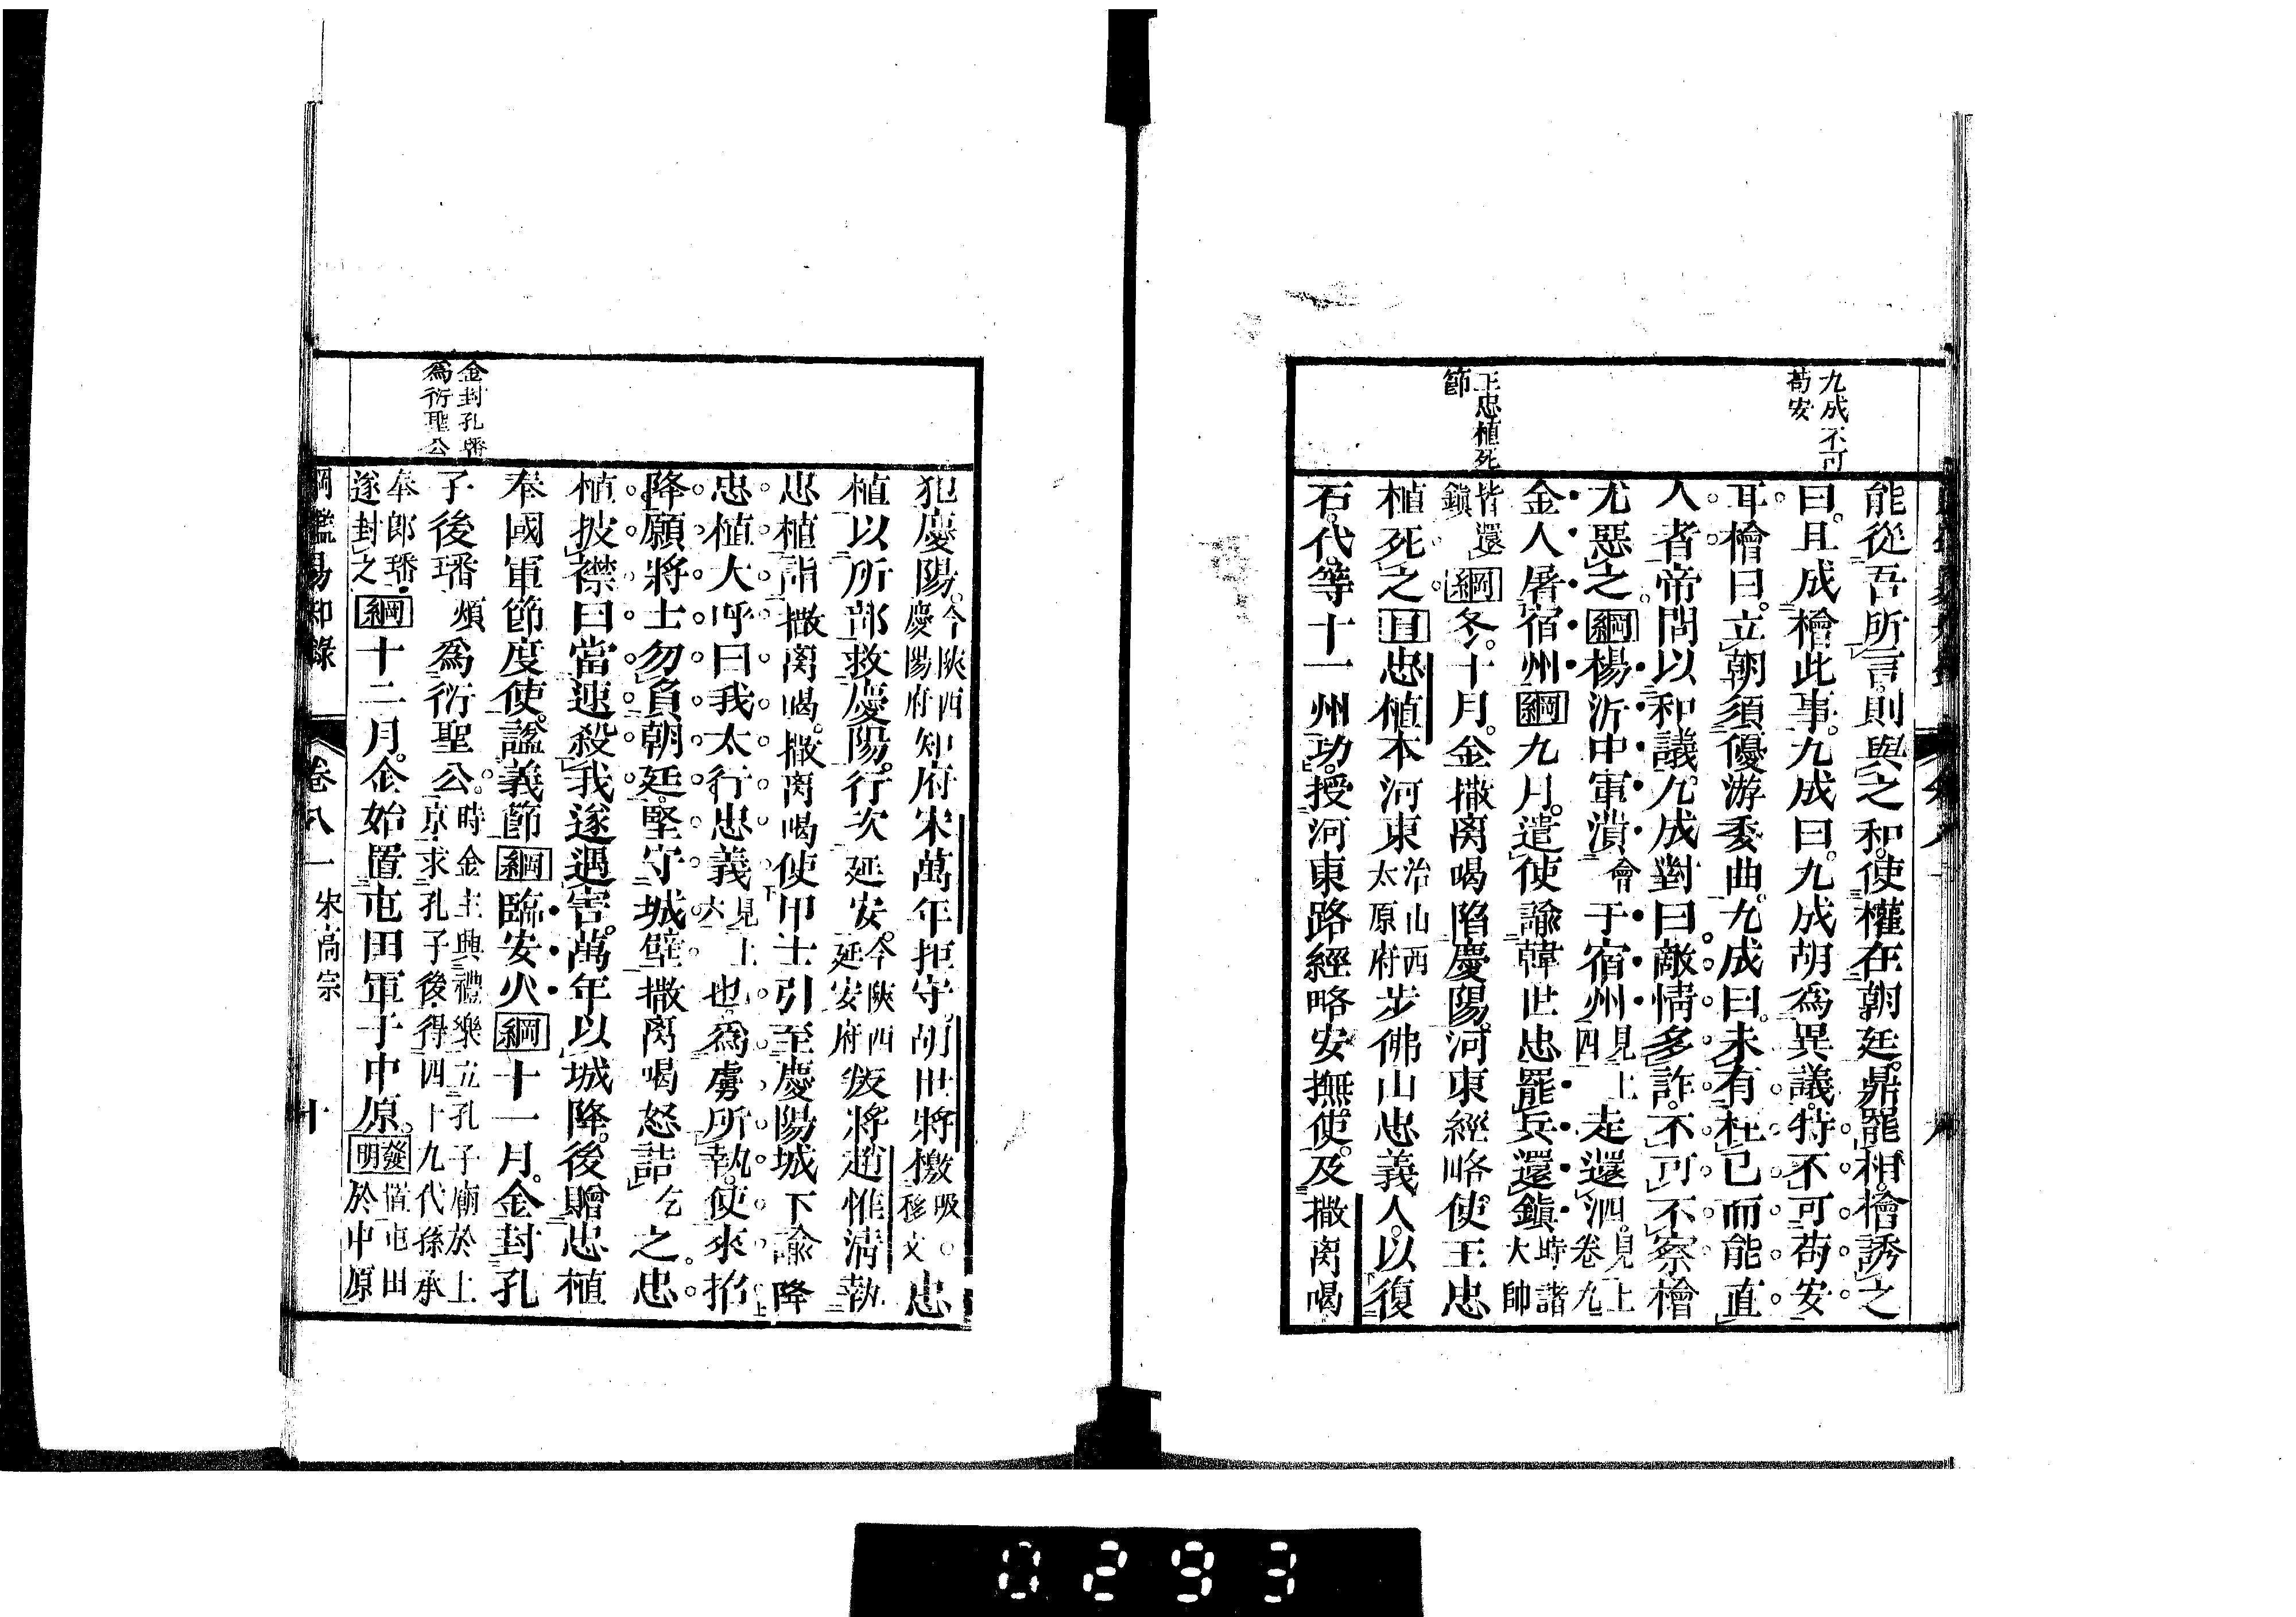 九成不可
苟安
王忠植死
節
能從吾所言則與之和使權在朝廷鼎罷相檜誘之
曰且成檜此事九成曰九成胡為異議特不可苟安
耳檜曰立朝須優游委曲九成曰未有枉己而能直
人者帝問以和議九成對曰敵情多詐不可不察檜
尤惡之綱楊沂中軍潰會于宿州見上四走還泗見上卷九
金人屠宿州綱九月遣使諭韓世忠罷兵還鎮時諸大帥
皆還鎮綱冬十月金撒离喝陷慶陽河東經略使王忠
植死之目忠植本河東治山西太原府步佛山忠義人以復
石代等十一州功授河東路經略安撫使及撒离喝
金封孔璠
為衍聖公
犯慶陽今陝西慶陽府知府宋萬年拒守胡世將檄吸移文忠
植以所部救慶陽行次延安今陝西延安府叛將趙惟清執
忠植詣撒离喝撒离喝使甲士引至慶陽城下諭降
忠植大呼曰我太行忠義見上六也為虜所執使來招
降願將士勿負朝廷堅守城壁撒离喝怒詰乞之忠
植披襟曰當速殺我遂遇害萬年以城降後贈忠植
奉國軍節度使諡義節綱臨安火綱十一月金封孔
子後璠煩為衍聖公時金主興禮樂立孔子廟於上京求孔子後得四十九代孫承
奉郎璠遂封之綱十二月金始置屯田軍于中原發明置屯田於中原
綱鑑易知錄 卷八一 宋高宗 十